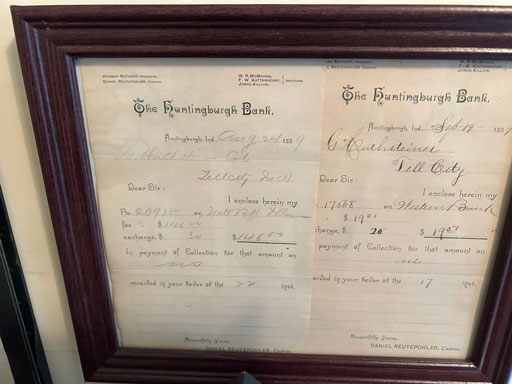 HERMAN ROTHERT, PRESIDENT.
DANIEL REUTEPOHLER, CASHIER.
W. R. McMAHAN,
F. W. KATTERHENRY,
JONAS KILLION,
DIRECTORS.
The Huntingburgh Bank,
Huntingburgh, Ind. Aug 24 1889
Tell City Ind
Dear Sir:
I enclose herein my
No. on
for
exchange, $ $
In payment of Collection for that amount on
us
received in your favor of the 22 inst.
Respectfully Yours,
DANIEL REUTEPOHLER, Cashier.
DIRECTORS.
JONAS KILLION,
The Huntingburgh Bank,
Huntingburgh, Ind. Sep 19 188
Tell City
Dear Sir:
I enclose herein my
17068 on
$ 19 01
change, $ 20 $ 19 01
payment of Collection for that amount on
us
eived in your favor of the 17 inst.
Respectfully Yours,
DANIEL REUTEPOHLER, Cashier.